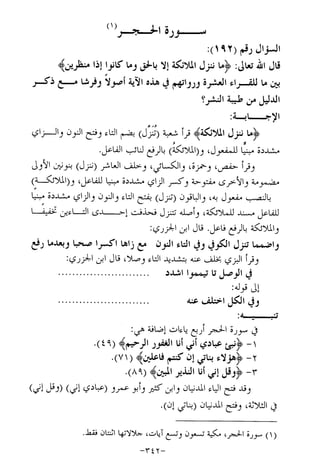 ســـــورة الحـــجـــر (١)
السؤال رقم (١٩٢):
قال الله تعالى: ﴿ما ننزل الملائكة إلا بالحق وما كانوا إذا منظرين﴾
بين ما للقـــراء العشرة ورواتهم في هذه الآية أصولاً وفرشا مـــع ذكـــر
الدليل من طيبة النشر؟
الإجـــابـــة:
﴿ما ننزل الملائكة﴾ قرأ شعبة (تُنَزَّل) بضم التاء وفتح النون والـــزاي
مشددة مبنيًا للمفعول، و(الملائكةُ) بالرفع لنائب الفاعل.
وقرأ حفص، وحمزة، والكسائي، وخلف العاشر (ننزل) بنونين الأولى
مضمومة والأخرى مفتوحة وكسر الزاي مشددة مبنيا للفاعل، و(الملائكـــة)
بالنصب مفعول به، والباقون (تنزل) بفتح التاء والنون والزاي مشددة مبنيا
للفاعل مسند للملائكة، وأصله تتنزل فحذفت إحـــدى التـــاءين تخفيفـــا
والملائكة بالرفع فاعل. قال ابن الجزري:
واضمما تنزل الكوفي وفي التاء النون مع زاها اكسرا صحبا وبعدما رفع
وقرأ البزي بخلف عنه بتشديد التاء وصلا، قال ابن الجزري:
في الوصل تا تيمموا اشدد ..........................
إلى قوله:
وفي الكل اختلف عنه ..........................
تنبـــــيـــــه:
في سورة الحجر أربع ياءات إضافة هي:
١- ﴿نبئ عبادي أني أنا الغفور الرحيم﴾ (٤٩).
٢- ﴿هؤلاء بناتي إن كنتم فاعلين﴾ (٧١).
٣- ﴿وقل إني أنا النذير المبين﴾ (٨٩).
وقد فتح الياء المدنيان وابن كثير وأبو عمرو (عبادي إني) (وقل إني)
في الثلاثة، وفتح المدنيان (بناتي إن).
(١) سورة الحجر، مكية تسعون وتسع آيات، جلالاتها اثنتان فقط.
-٣٤٢-